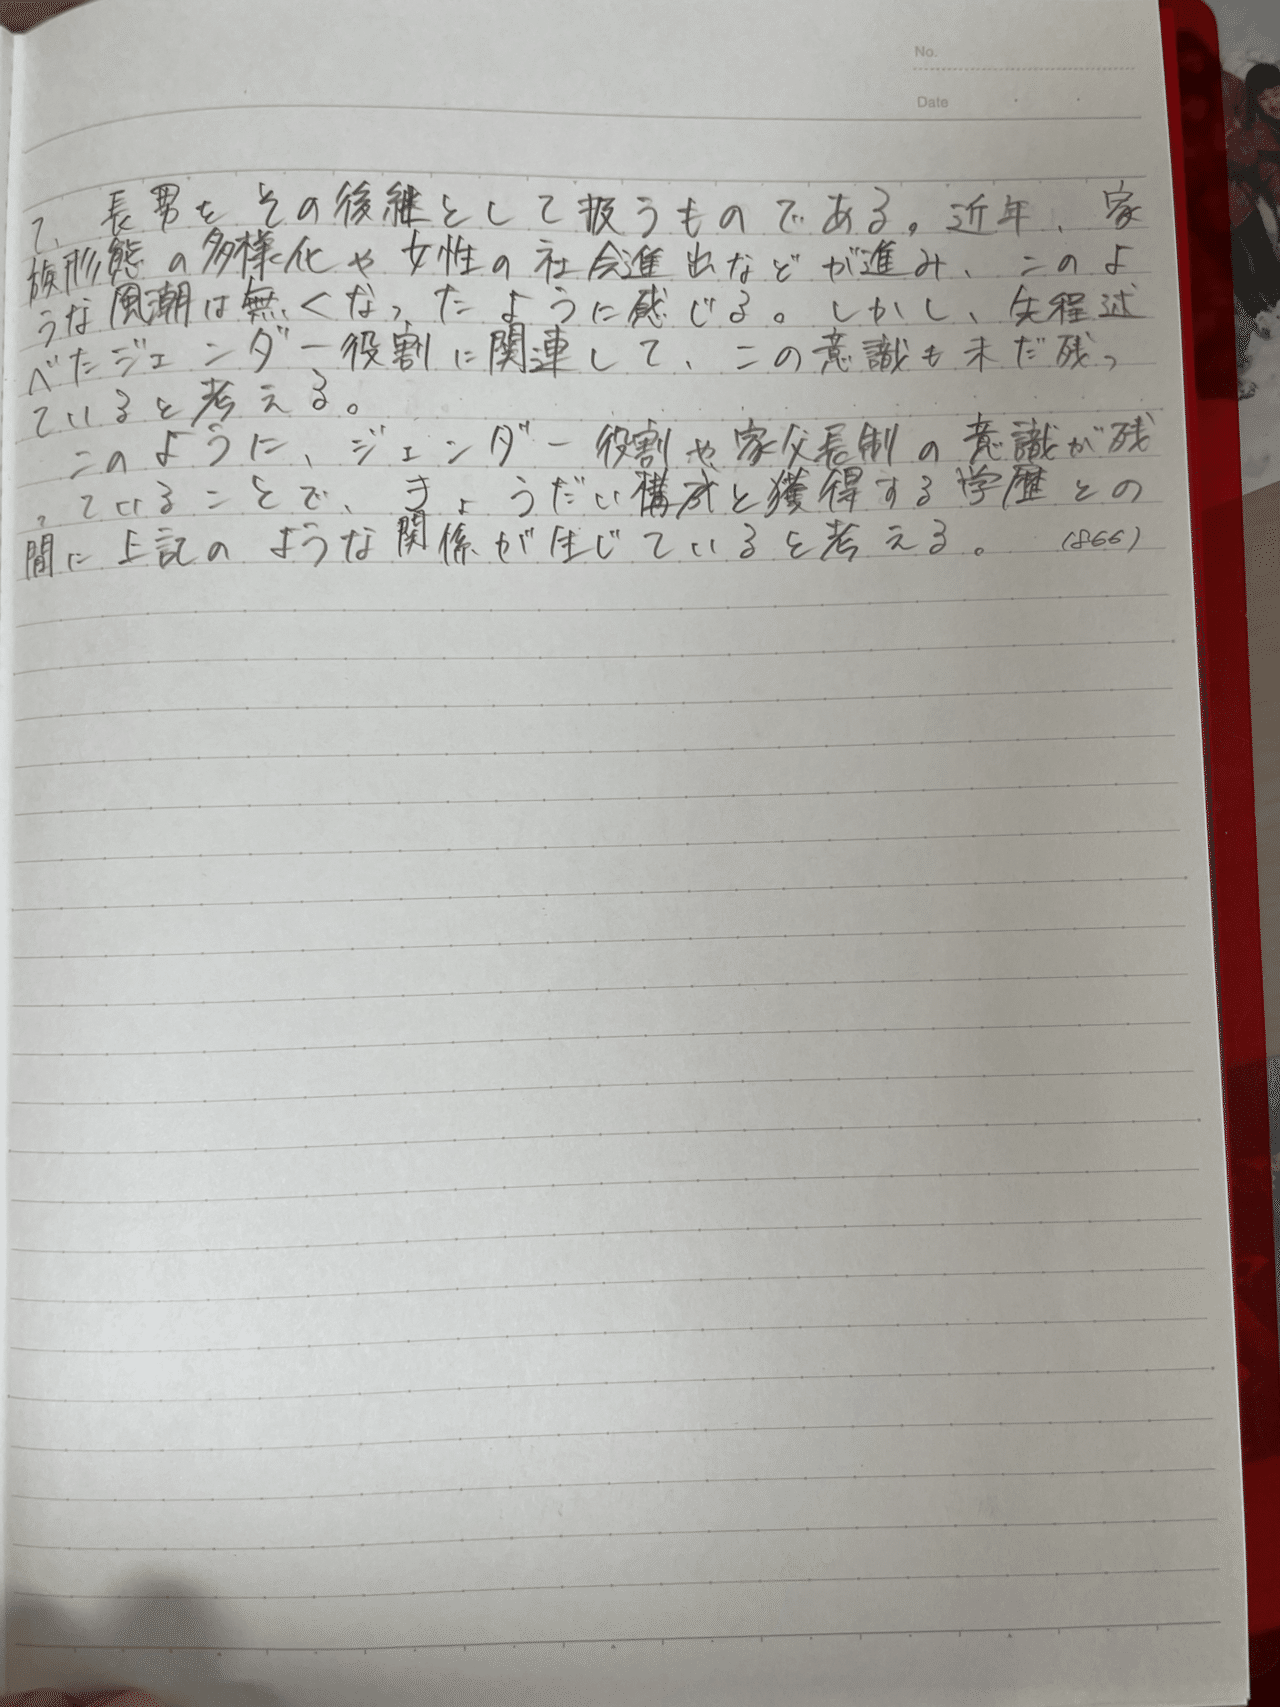 No.
Date
て、長男をその後継として扱うものである。近年、家
族形態の多様化や女性の社会進出などが進み、このよ
うな風潮は無くなったように感じる。しかし、先程述
べたジェンダー役割に関連して、この意識も未だ残っ
ていると考える。
このように、ジェンダー役割や家父長制の意識が残
っていることで、きょうだい構成と獲得する学歴との
間に上記のような関係が生じていると考える。 (866)